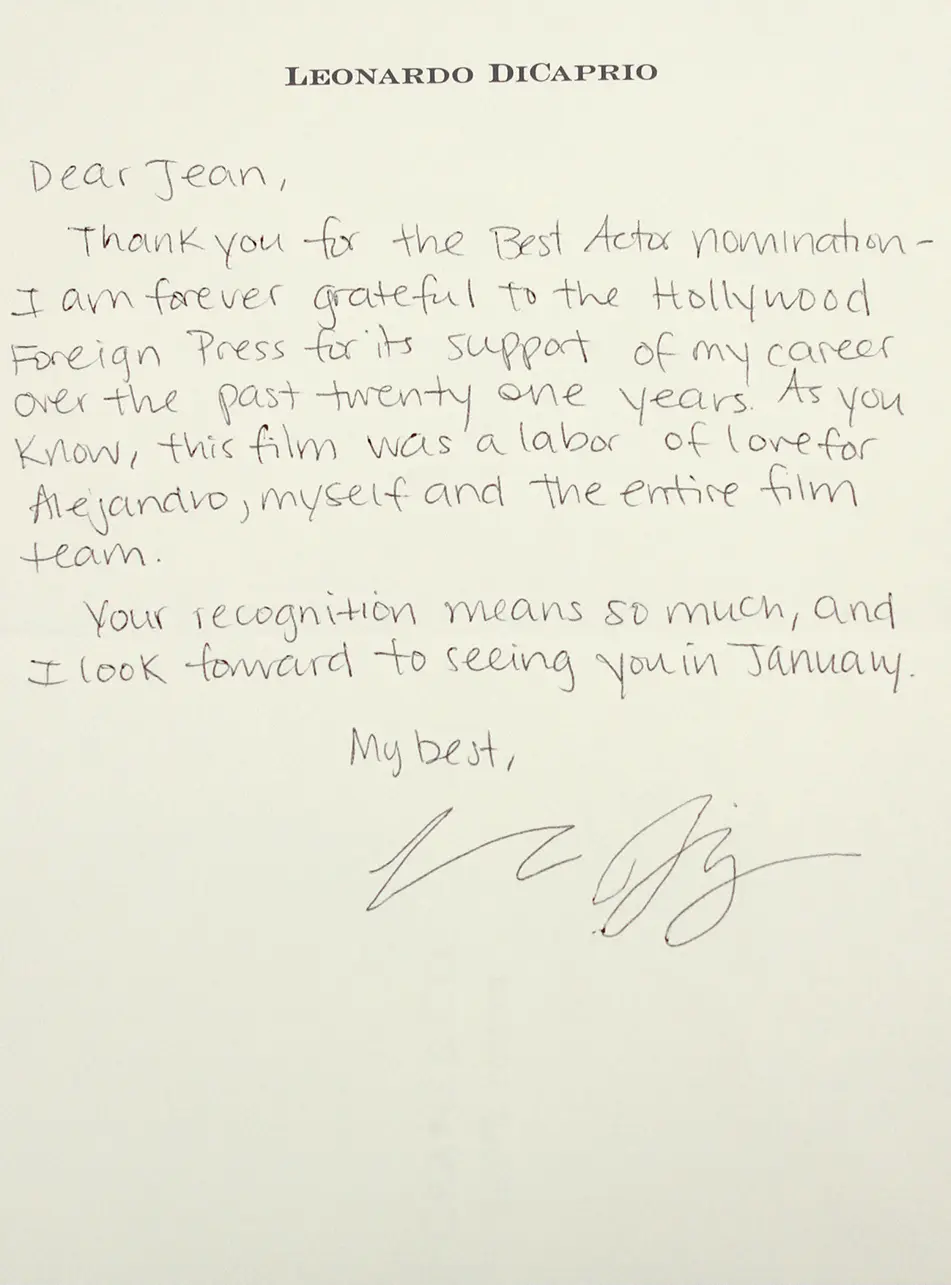 LEONARDO DICAPRIO
Dear Jean,
Thank you for the Best Actor nomination -
I am forever grateful to the Hollywood
Foreign Press for its support of my career
over the past twenty one years. As you
know, this film was a labor of love for
Alejandro, myself and the entire film
team.
Your recognition means so much, and
I look forward to seeing you in January.
My best,